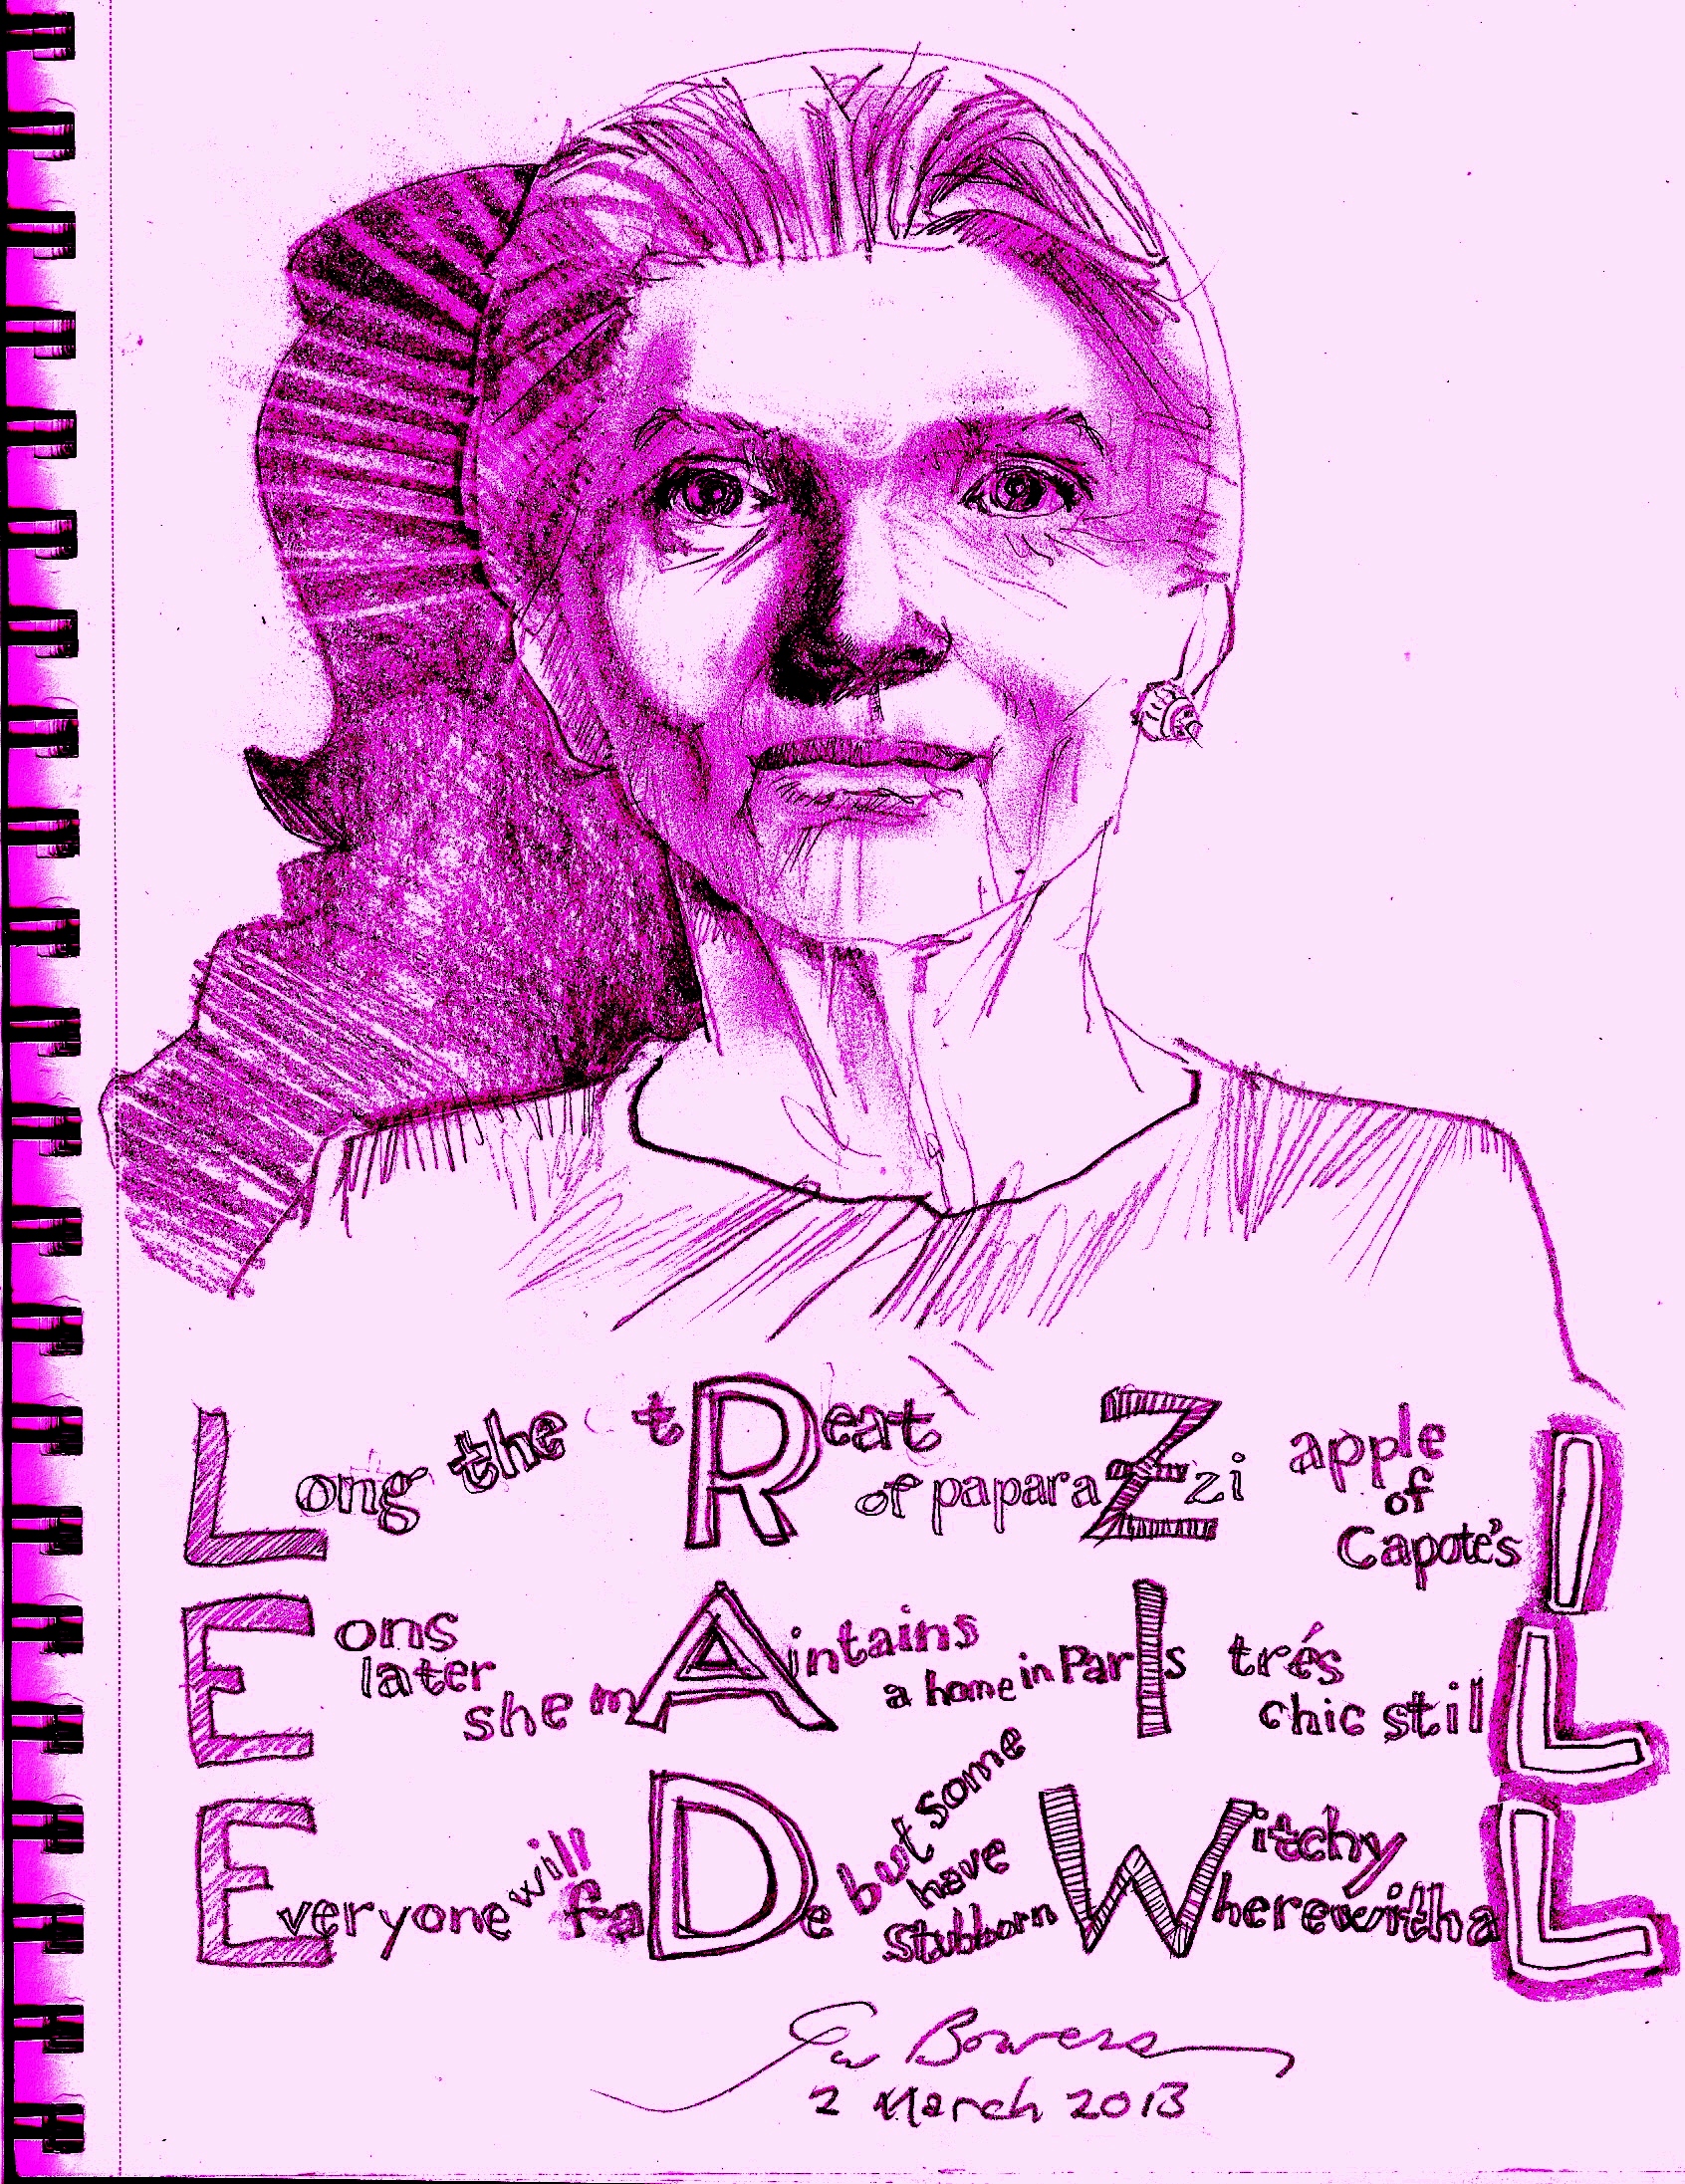 Long the tReat of paparaZzi apple of Capote's I
Eons later she mAintains a home in ParIs trés chic stilL
Everyone will faDe but some have stubborn Witchy WherewithaL
Bowers
2 March 2013